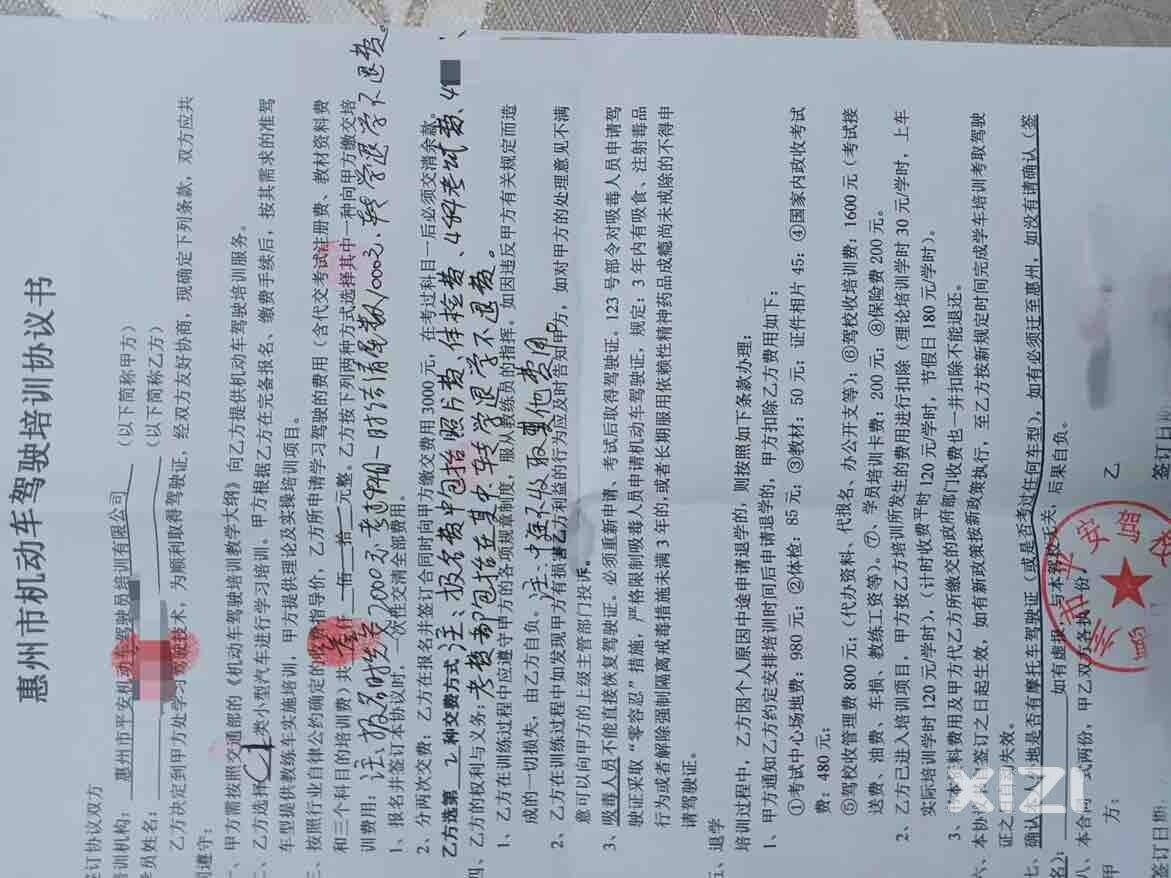 惠州市机动车驾驶培训协议书
签订协议双方
培训机构：惠州市平安机动车驾驶员培训有限公司（以下简称甲方）
学员姓名：（以下简称乙方）
乙方决定到甲方处学习驾驶技术，为顺利取得驾驶证，经双方友好协商，现确定下列条款，双方应共
同遵守：
一、甲方需按照交通部的《机动车驾驶培训教学大纲》向乙方提供机动车驾驶培训服务。
二、乙方选择C1类小型汽车进行学习培训。甲方根据乙方在完备报名、缴费手续后，按其需求的准驾
车型提供教练车实施培训，甲方提供理论及实操培训项目。
三、按照行业自律公约确定的收费指导价，乙方所申请学习驾驶的费用（含代交考试注册费、教材资料费
和三个科目的培训费）共 仟 佰 拾 元整。乙方按下列两种方式选择其中一种向甲方缴交培
训费用：注：报名时先交2000元 考科目一时付清尾款1000元、转学退学不退费。
1、报名并签订本协议时，一次性交清全部费用。
2、分两次交费：乙方在报名并签订合同时向甲方缴交费用3000元，在考过科目一后必须交清余款。
乙方选第 2 种交费方式 注：报名费中包括照片费、体检费、4科考试费、4科
四、乙方的权利与义务：考费都包括在其中.转学退学不退费。
1、乙方在训练过程中应遵守甲方的各项规章制度，服从教练员的指挥，如因违反甲方有关规定而造
成的一切损失，由乙方自负。注：中途不收取其他费用
2、乙方在训练过程中如发现甲方有损害乙方利益的行为应及时告知甲方，如对甲方的处理意见不满
意可以向甲方的上级主管部门投诉。
3、吸毒人员不能直接恢复驾驶证。必须重新申请、考试后取得驾驶证。123号部令对吸毒人员申请驾
驶证采取“零容忍”措施，严格限制吸毒人员申请机动车驾驶证，规定：3年内有吸食、注射毒品
行为或者解除强制隔离戒毒措施未满3年的，或者长期服用依赖性精神药品成瘾尚未戒除的不得申
请驾驶证。
五、退学
培训过程中，乙方因个人原因中途申请退学的，则按照如下条款办理：
1、甲方通知乙方约定安排培训时间后申请退学的，甲方扣除乙方费用如下：
①考试中心场地费：980元；②体检：85元；③教材：50元；证件相片45：④国家内政收考试
费：480元；
⑤驾校收管理费800元；（代办资料、代报名、办公开支等）；⑥驾校收培训费：1600元（考试接
送费、油费、车损、教练工资等）。⑦、学员培训卡费：200元；⑧保险费200元。
2、乙方已进入培训项目，甲方按乙方培训所发生的费用进行扣除（理论培训学时30元/学时，上车
实际培训学时120元/学时），（计时收费平时120元/学时，节假日180元/学时）。
3、教材资料费用及甲方代乙方所缴交的政府部门收费也一并扣除不能退还。
六、本协议签订之日起生效，如有新政策按新政策执行，至乙方按新规定时间完成学车培训考取驾驶
证之失效。
七、确认本人本地是否有摩托车驾驶证（或是否考过任何车型），如有必须迁至惠州，如没有请确认（签
名）： 如有虚报，与本驾校无关，后果自负。
八、本合同一式两份，甲乙双方各执一份。
甲 方： 乙
签订日期： 签订日
XIZI